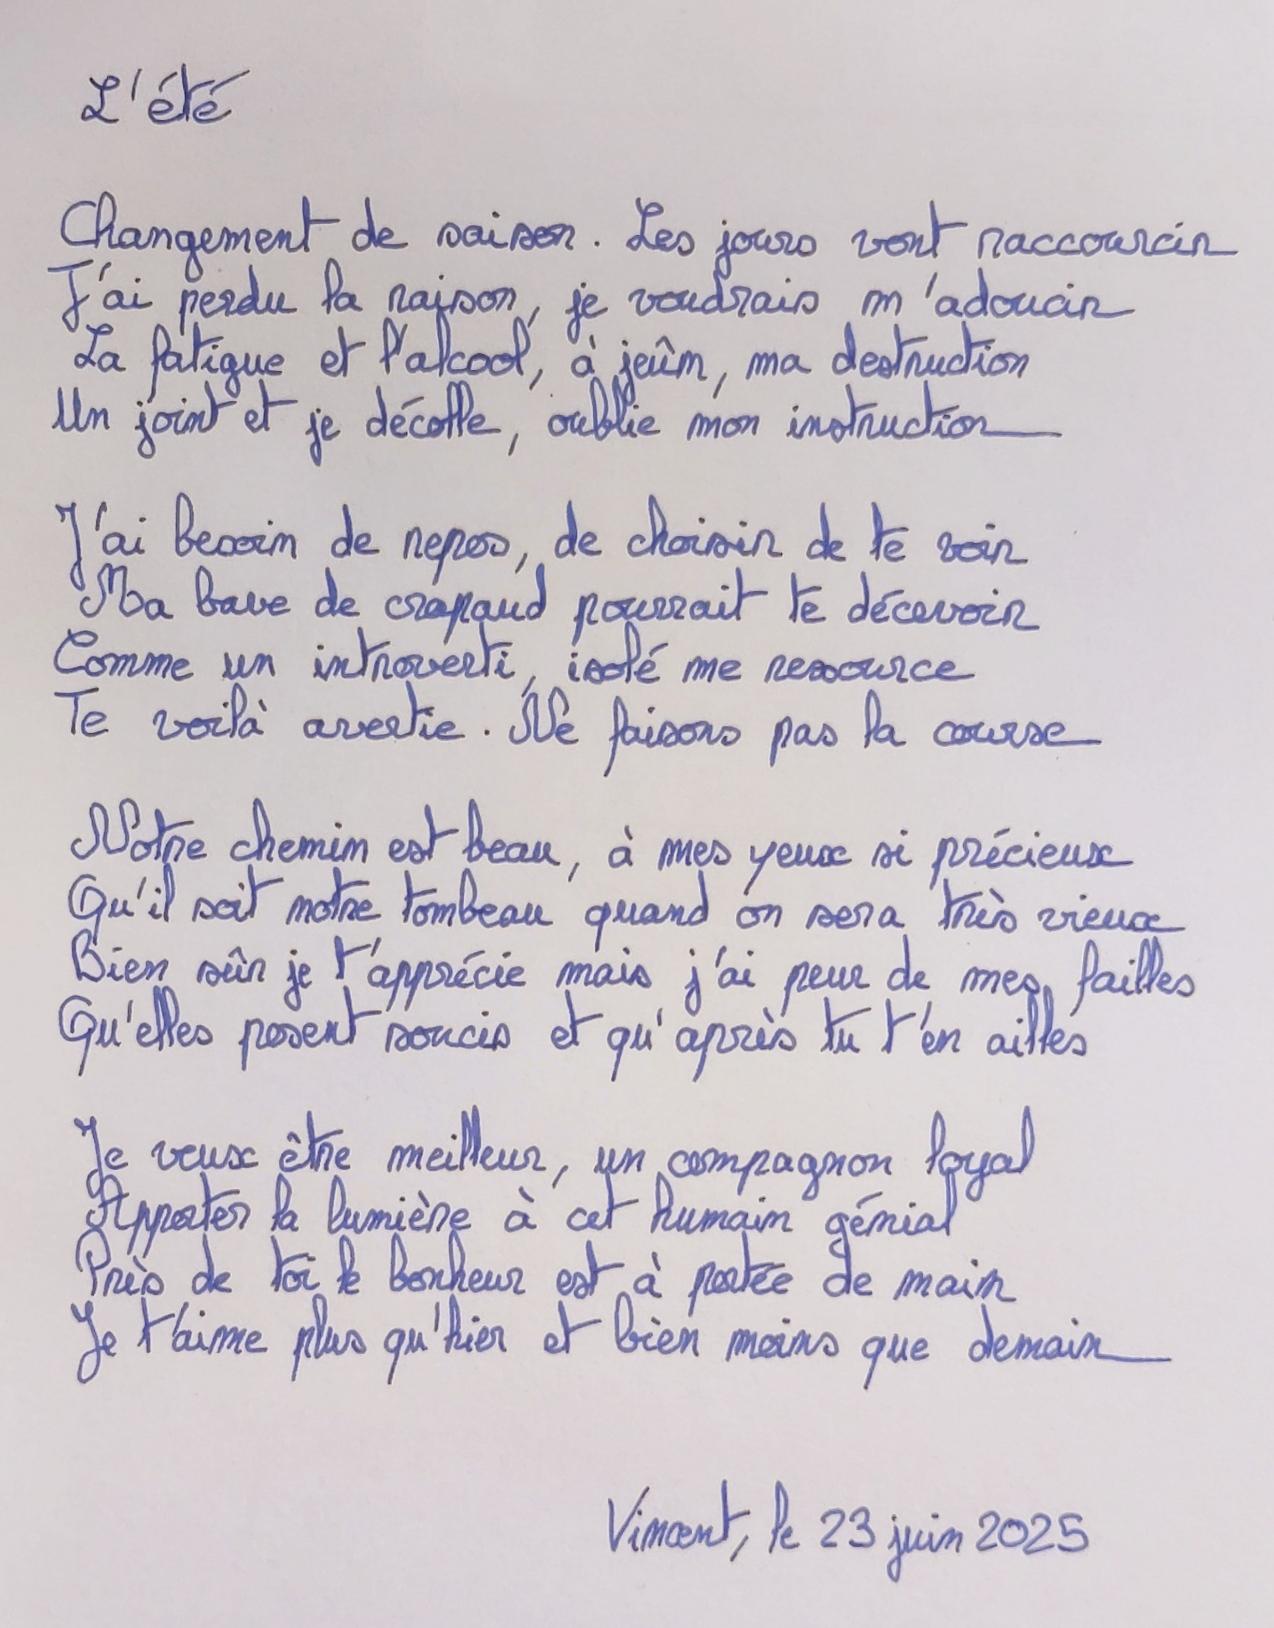 L'été
Changement de saison. Les jours vont raccourcir
J'ai perdu la raison, je voudrais m'adoucir
La fatigue et l'alcool, à jeûn, ma destruction
Un joint et je décolle, oublie mon instruction
J'ai besoin de repos, de choisir de te voir
Ma bave de crapaud pourrait te décevoir
Comme un introverti, isolé me ressource
Te voilà avertie. Ne faisons pas la course
Notre chemin est beau, à mes yeux si précieux
Qu'il soit notre tombeau quand on sera très vieux
Bien sûr je t'apprécie mais j'ai peur de mes failles
Qu'elles posent soucis et qu'après tu t'en ailles
Je veux être meilleur, un compagnon loyal
Apporter la lumière à cet humain génial
Près de toi le bonheur est à portée de main
Je t'aime plus qu'hier et bien moins que demain
Vincent, le 23 juin 2025